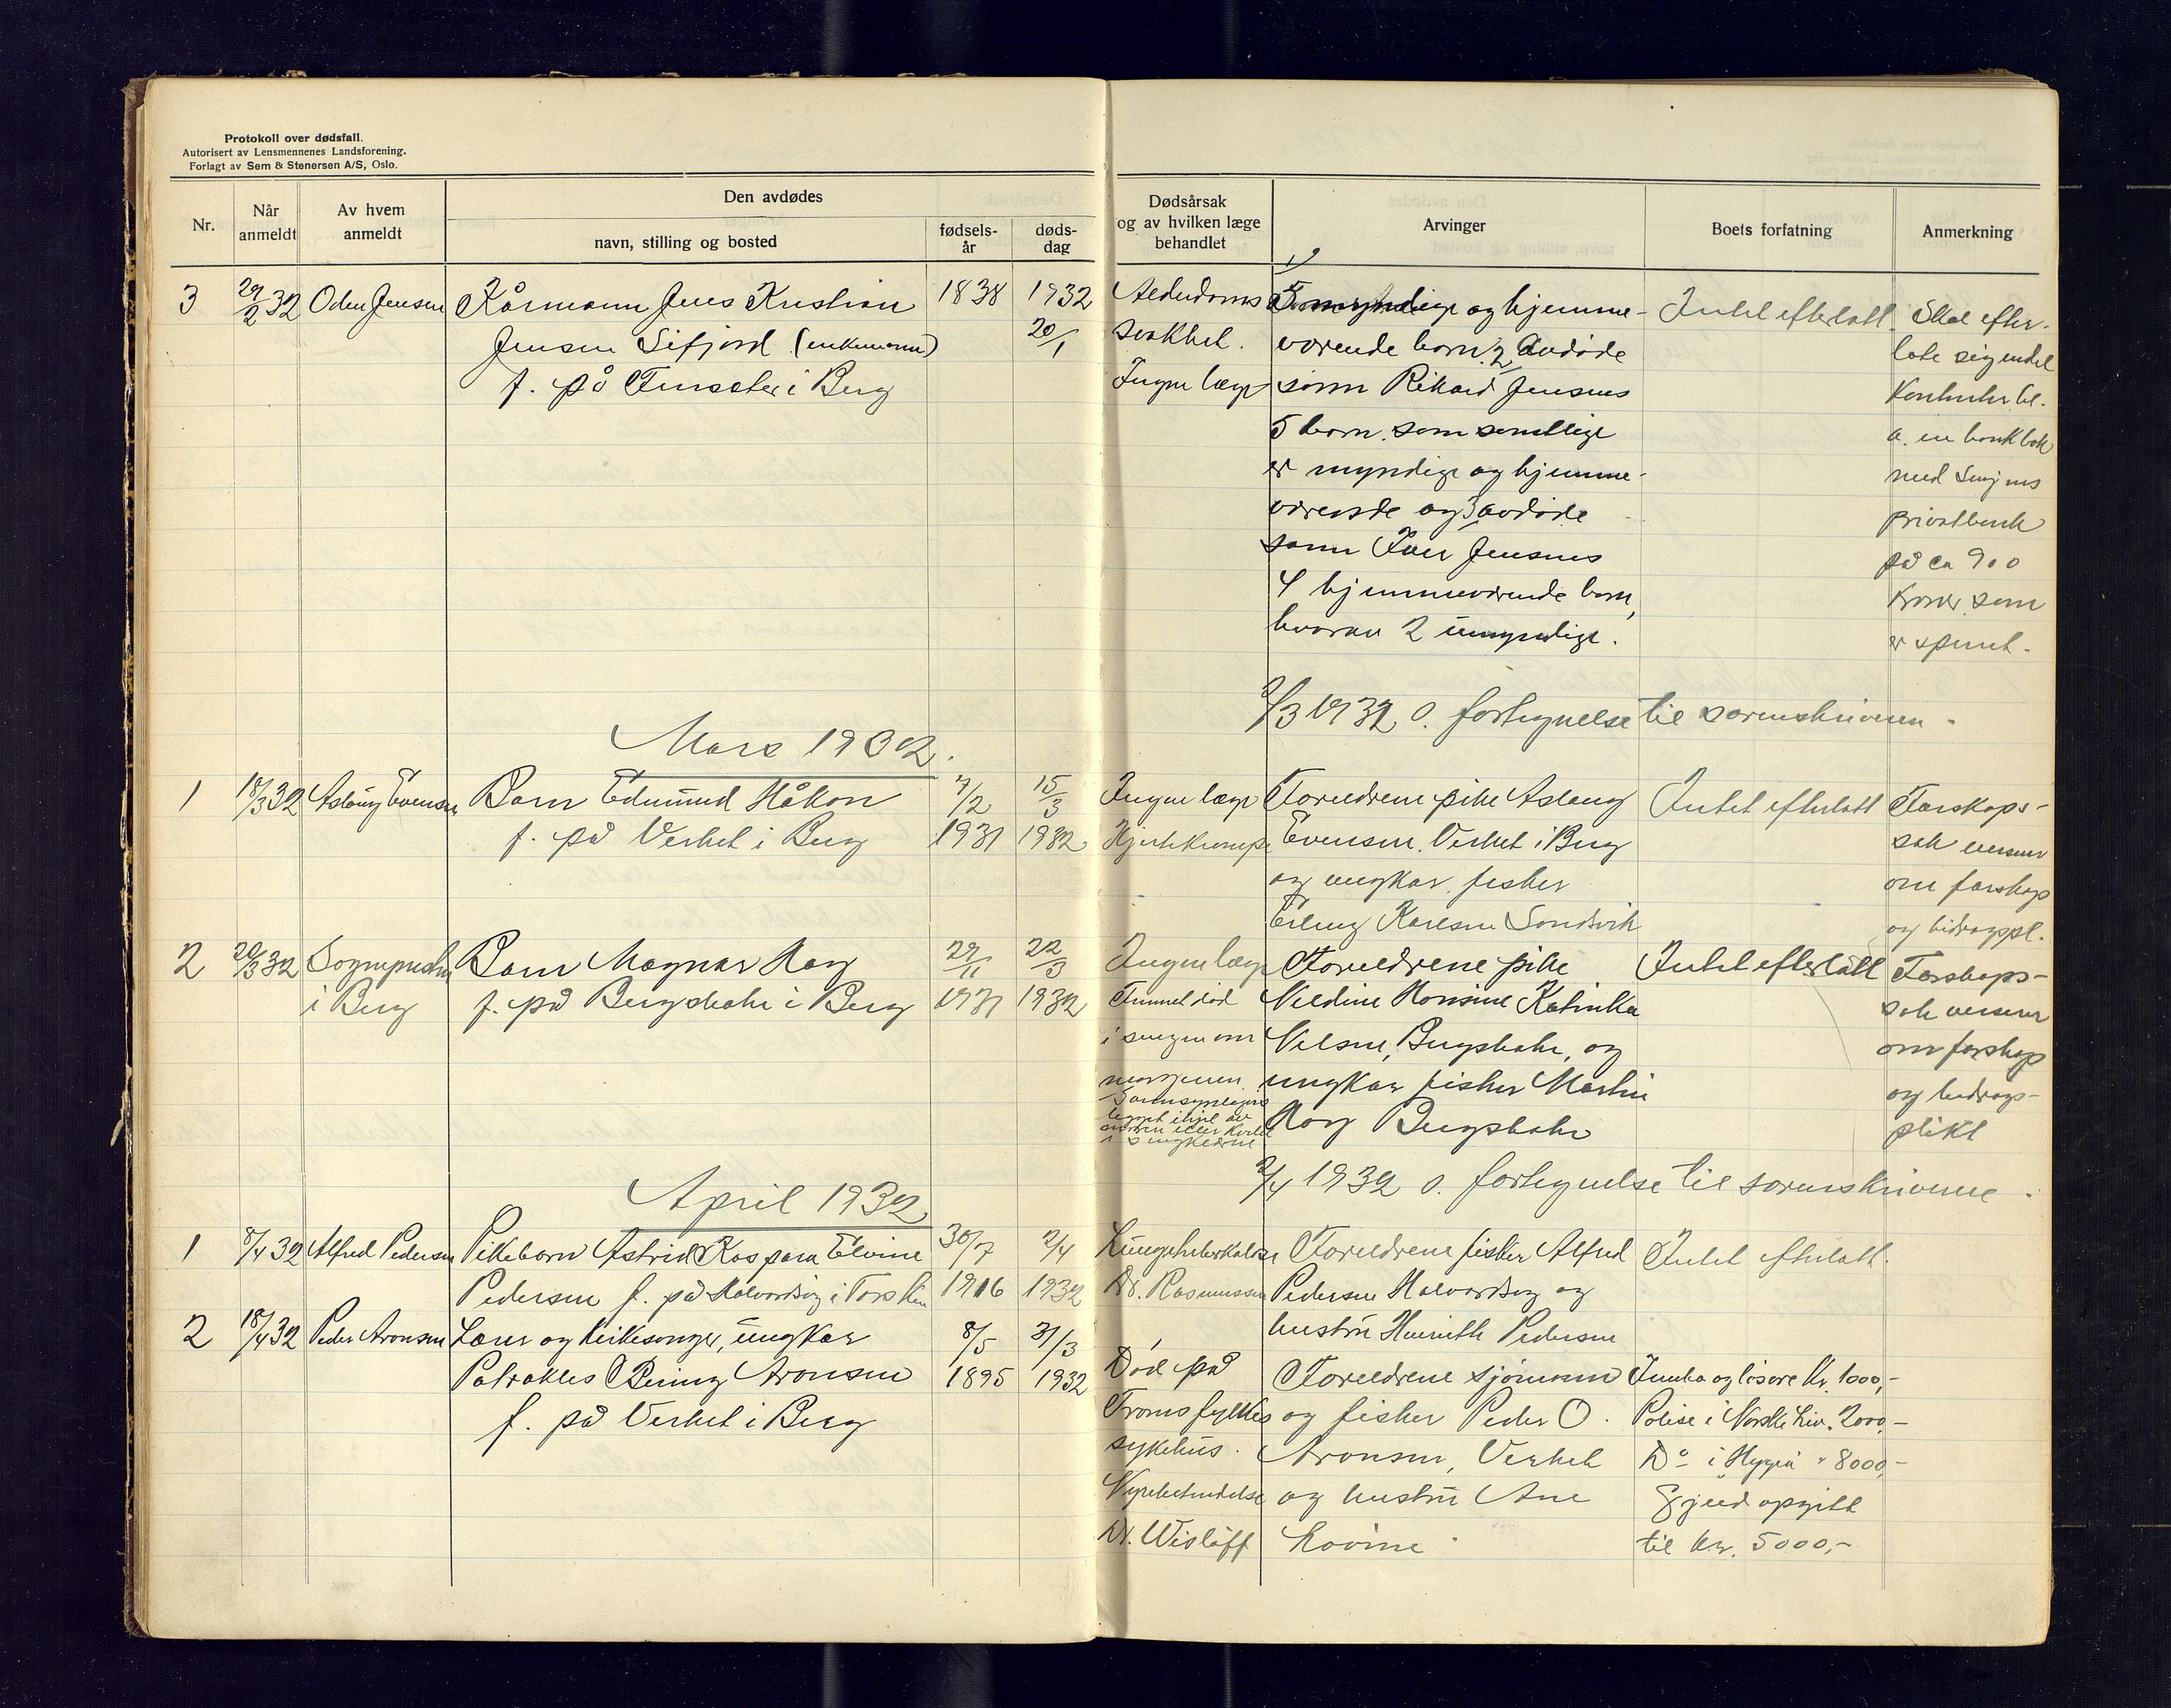 Protokoll over dødsfall.
Autorisert av Lensmennenes Landsforening.
Forlagt av Sem & Stenersen A/S, Oslo.
Nr.
Når anmeldt
Av hvem anmeldt
Den avdødes
navn, stilling og bosted
fødsels-år
døds-dag
Dødsårsak og av hvilken læge behandlet
Arvinger
Boets forfatning
Anmerkning
3 29/2 32 Oden Jensen Kårmann Jens Kristian 1838 1932
Jensen Sifjord (enkemann) 20/1
f. på Finsæter i Berg
Alderdoms
svakhet.
Ingen læge
1/
5 myndige og hjemme-
værende barn. 2/ Avdøde
sønn Rikard Jensens
5 barn. som samtlige
er myndige og hjemme-
værende og 3/ avdøde
sønn Iver Jensens
4 hjemmeværende barn,
hvorav 2 umyndige.
Intet efterlatt
Skal efter-
late sig endel
kontanter bl.
a. en bankbok
med Senjens
privatbank
på ca 900
kroner som
er sperret.
2/3 1932 s. fortegnelse til sorenskriveren.
Mars 1932.
1 18/3 32 Aslaug Evensen Barn Edmund Håkon 7/2 15/3
f. på Verket i Berg 1931 1932
Ingen læge
Hjertekrampe
Foreldrene pike Aslaug
Evensen. Verket i Berg
og ungkar. fisker
Erling Karlsen Sandvik
Intet efterlatt
Farskaps-
sak verserer
om farskap
og bidragspl.
2 26/3 32 Sognepresten Barn Magnar Haug 29/11 22/3
i Berg f. på Bergsbotn i Berg 1931 1932
Ingen læge
Funnet død
i sengen om
morgenen.
Sannsynligvis
ligget ihjel av
moren eller kvelt
i sengklærne
Foreldrene pike
Nildine Hansine Katinka
Nilsen, Bergsbotn, og
ungkar fisker Martin
Haug Bergsbotn
Intet efterlatt
Farskaps-
sak verserer
om farskap
og bidrags-
plikt
2/4 1932 s. fortegnelse til sorenskriveren.
April 1932
1 8/4 32 Alfred Pedersen Pikebarn Astrid Kaspara Elvine 30/7 2/4
Pedersen f. på Halvardsøy i Torsken 1916 1932
Lungetuberkulose
Dr. Rasmussen
Foreldrene fisker Alfred
Pedersen Halvardsøy og
hustru Henrikke Pedersen
Intet efterlatt.
2 18/4 32 Peder Aronsen Lærer og kirkesanger, ungkar 8/5 31/3
Patrakles Bening Aronsen 1895 1932
f. på Verket i Berg
Død på
Troms fylkes
sykehus.
Nyrebetendelse
Dr. Wisløff
Foreldrene sjømann
og fisker Peder O.
Aronsen, Verket
og hustru Ane
Lovine
Innbo og løsøre kr. 1000,-
Polise i Norske Liv. 2000,-
Do i Hygea " 8000,-
Gjeld opgitt
til kr. 5000,-